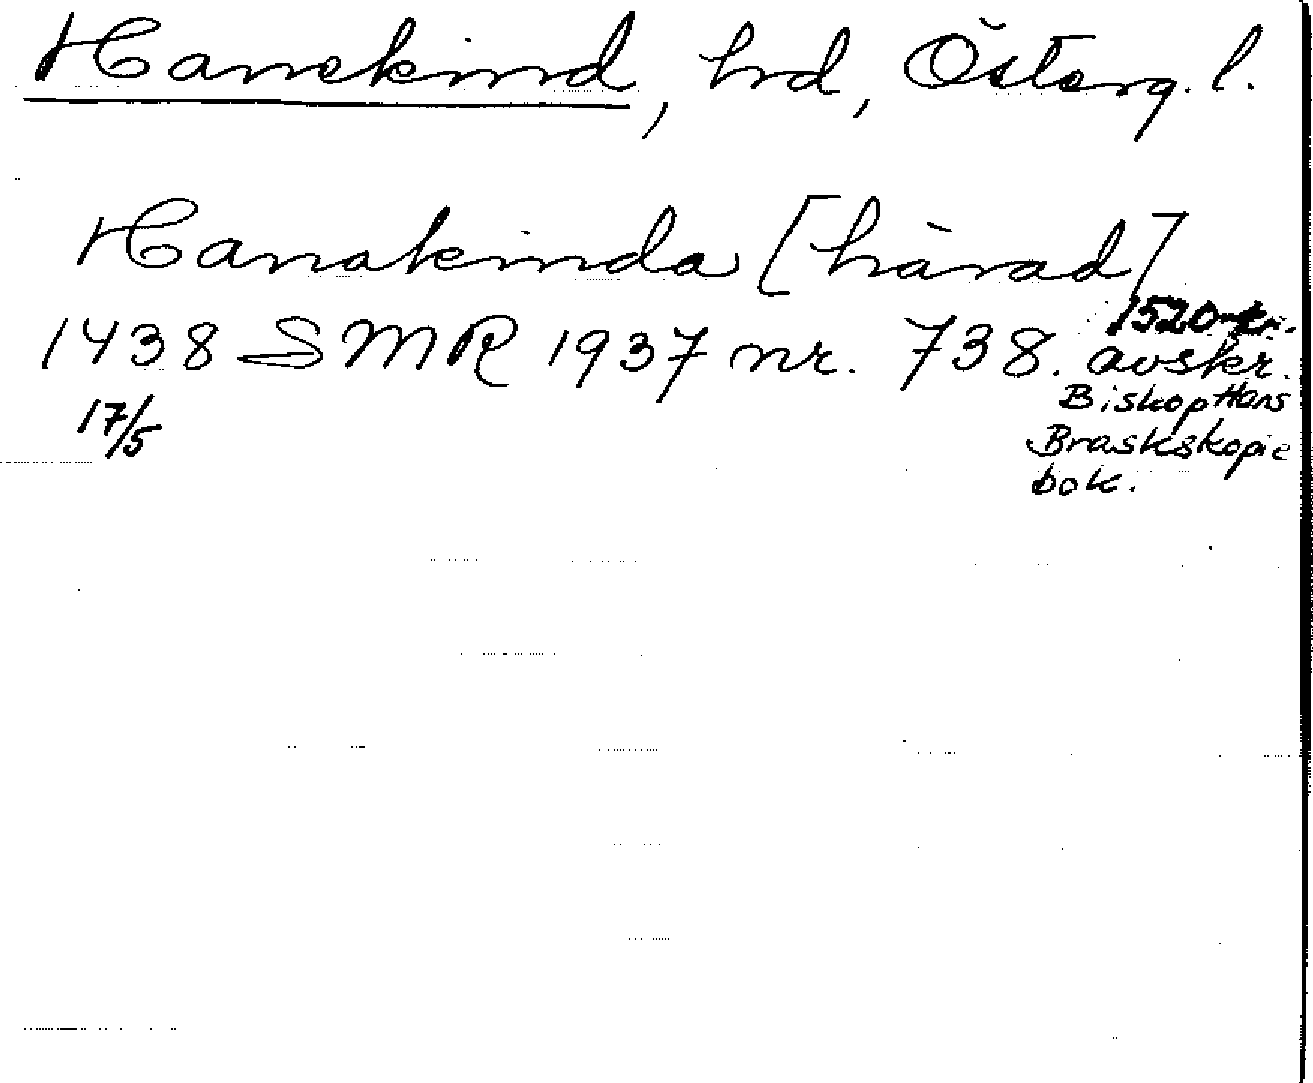 Hanekind, hrd, Österg. l.
Hanakinda [härad]
1438 SMR 1937 nr. 738. avskr.
17/5
Biskop Hans
Brasks kopie
bok.